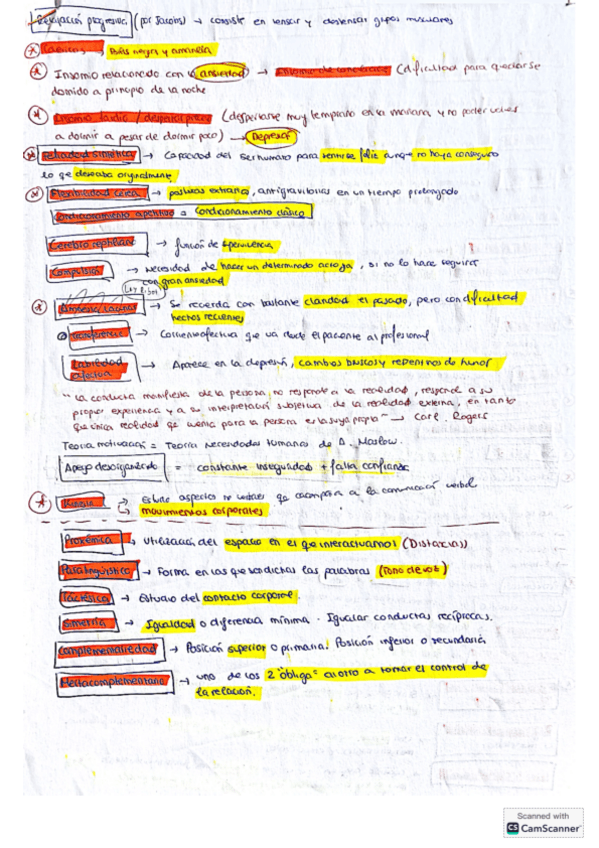 Relajación progresiva (por Jacobs) → consiste en tensar y destensar grupos musculares
→ Bilis negra y amarilla
Insomnio relacionado con la ansiedad → Insomnio de conciliación (dificultad para quedarse
dormido a principio de la noche
Insomnio tardío / despertar precoz (despertarse muy temprano en la mañana y no poder volver
a dormir a pesar de dormir poco) → Depresión
Felicidad sintética → Capacidad del ser humano para sentirse feliz aunque no haya conseguido
lo que deseaba originalmente
Flexibilidad cérea → posturas extrañas, antigravitorias en un tiempo prolongado
Condicionamiento apetitivo = Condicionamiento clásico
Cerebro reptiliano → función de supervivencia
Compulsión → necesidad de hacer un determinado acto ya, si no lo hace seguirá
con gran ansiedad
Amnesia → Se recuerda con bastante claridad el pasado, pero con dificultad
hechos recientes
Transferencia → Corriente afectiva que va desde el paciente al profesional
Labilidad afectiva → Aparece en la depresión, cambios bruscos y repentinos de humor
"La conducta manifiesta de la persona no responde a la realidad, responde a su
propia experiencia y a su interpretación subjetiva de la realidad externa, en tanto
que única realidad que cuenta para la persona es la suya propia" → Carl Rogers
Teoría motivación = Teoría Necesidades Humanas de A. Maslow.
Apego desorganizado = constante inseguridad + falta confianza
→ Estudia aspectos no verbales que acompaña a la comunicación verbal
→ movimientos corporales
Proxémica → Utilización del espacio en el que interactuamos (Distancias)
Paralingüística → Forma en las que son dichas las palabras (Tono de voz)
Tacésica → Estudio del contacto corporal.
Simetría → Igualdad o diferencia mínima. Igualar conductas recíprocas.
Complementariedad → Posición superior o primaria. Posición inferior o secundaria
Metacomplementaria → uno de los 2 "obliga" al otro a tomar el control de
la relación.
Scanned with
CS CamScanner